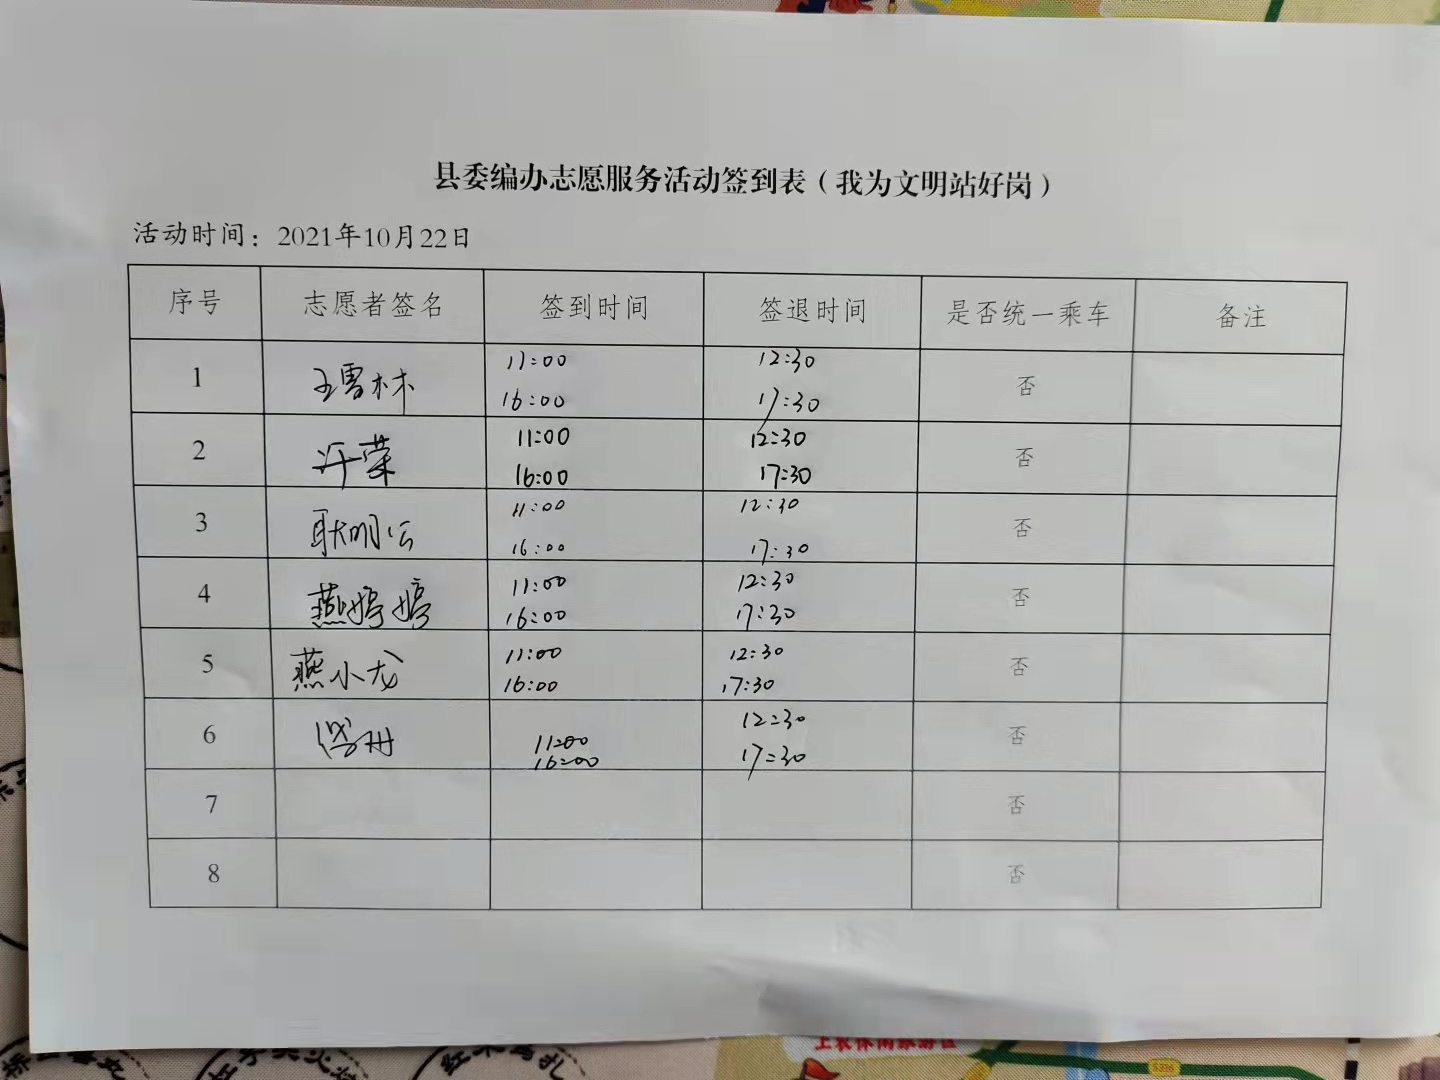 县委编办志愿服务活动签到表（我为文明站好岗）
活动时间：2021年10月22日
序号 志愿者签名 签到时间 签退时间 是否统一乘车 备注
1 王雪林 11:00 12:30 否
16:00 17:30
2 许荣 11:00 12:30 否
16:00 17:30
3 耿明 11:00 12:30 否
16:00 17:30
4 燕婷婷 11:00 12:30 否
16:00 17:30
5 燕小龙 11:00 12:30 否
16:00 17:30
6 11:00 12:30 否
16:00 17:30
7 否
8 否
S316